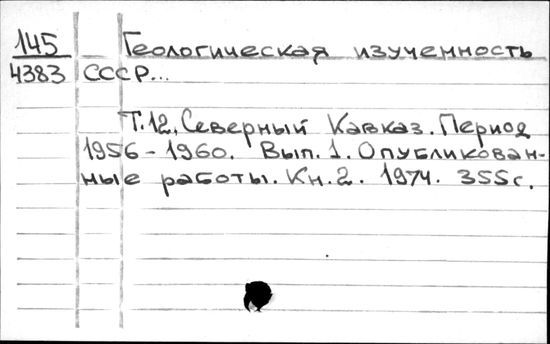 145 Геологическая изученность
4383 СССР...
Т.12. Северный Кавказ. Период
1956-1960. Вып.1. Опубликован-
ные работы. Кн.2. 1974. 355с.